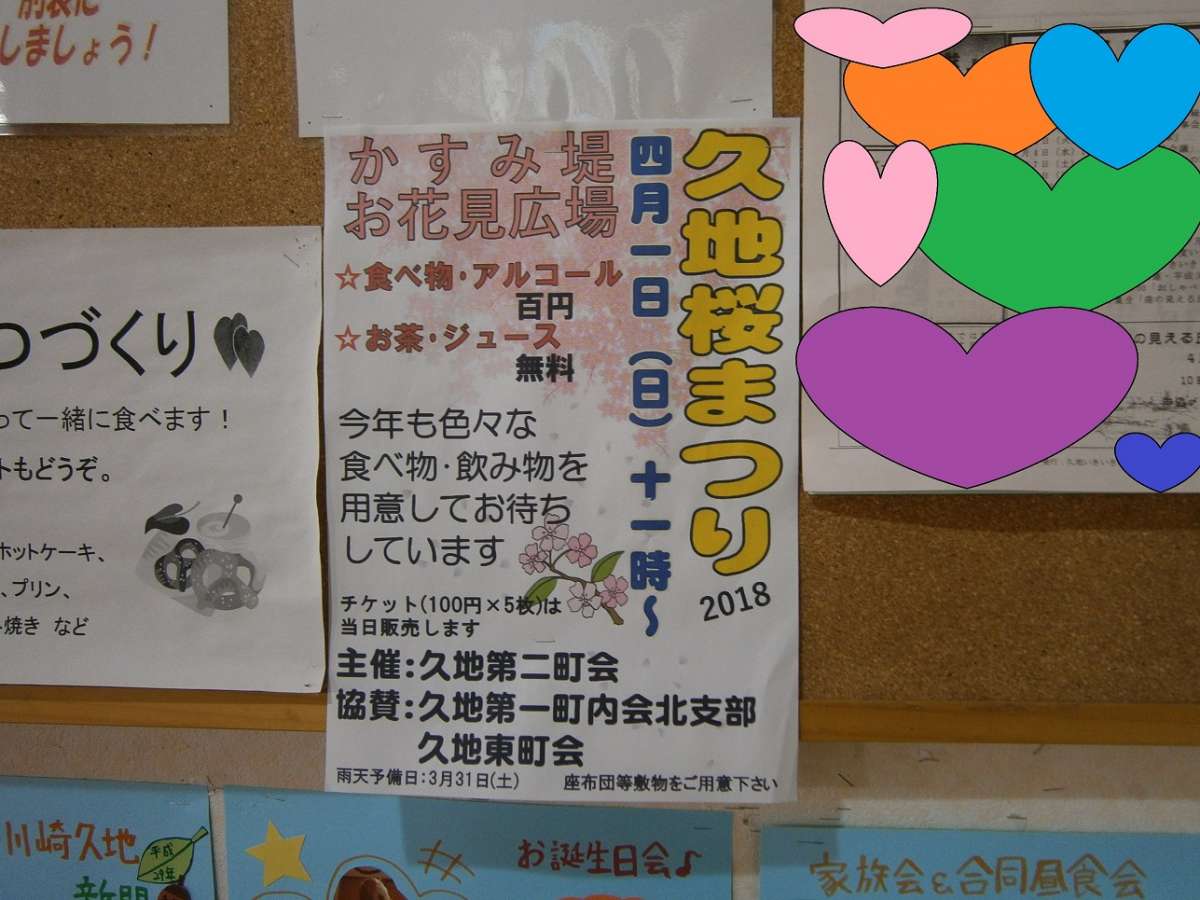 別表に
しましょう！
久地桜まつり
2018
四月一日（日）十一時～
かすみ堤
お花見広場
☆食べ物・アルコール
百円
☆お茶・ジュース
無料
今年も色々な
食べ物・飲み物を
用意してお待ち
しています
チケット(100円×5枚)は
当日販売します
主催:久地第二町会
協賛:久地第一町内会北支部
久地東町会
雨天予備日:3月31日(土)
座布団等敷物をご用意下さい
つづくり
って一緒に食べます！
トもどうぞ。
ホットケーキ、
、プリン、
焼き など
の見える
川崎久地
平成
29年
新聞
お誕生日会♪
家族会&合同昼食会